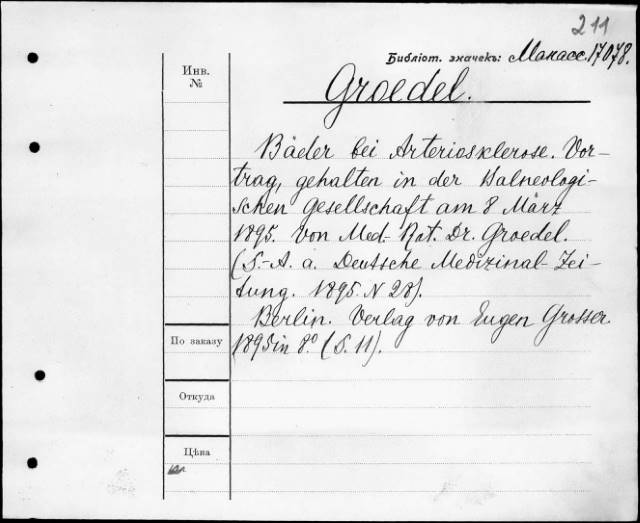 211
Библіот. значекъ: Манасс. 17078.
Инв.
№
Groedel.
Bäder bei Arteriosklerose. Vor-
trag, gehalten in der Balneologi-
schen Gesellschaft am 8 März
1895. Von Med.-Rat. Dr. Groedel.
(S.-A. a. Deutsche Medizinal-Zei-
tung. 1895. N 28).
Berlin. Verlag von Eugen Grosser.
1895 in 8º (S. 11).
По заказу
Откуда
Цѣна